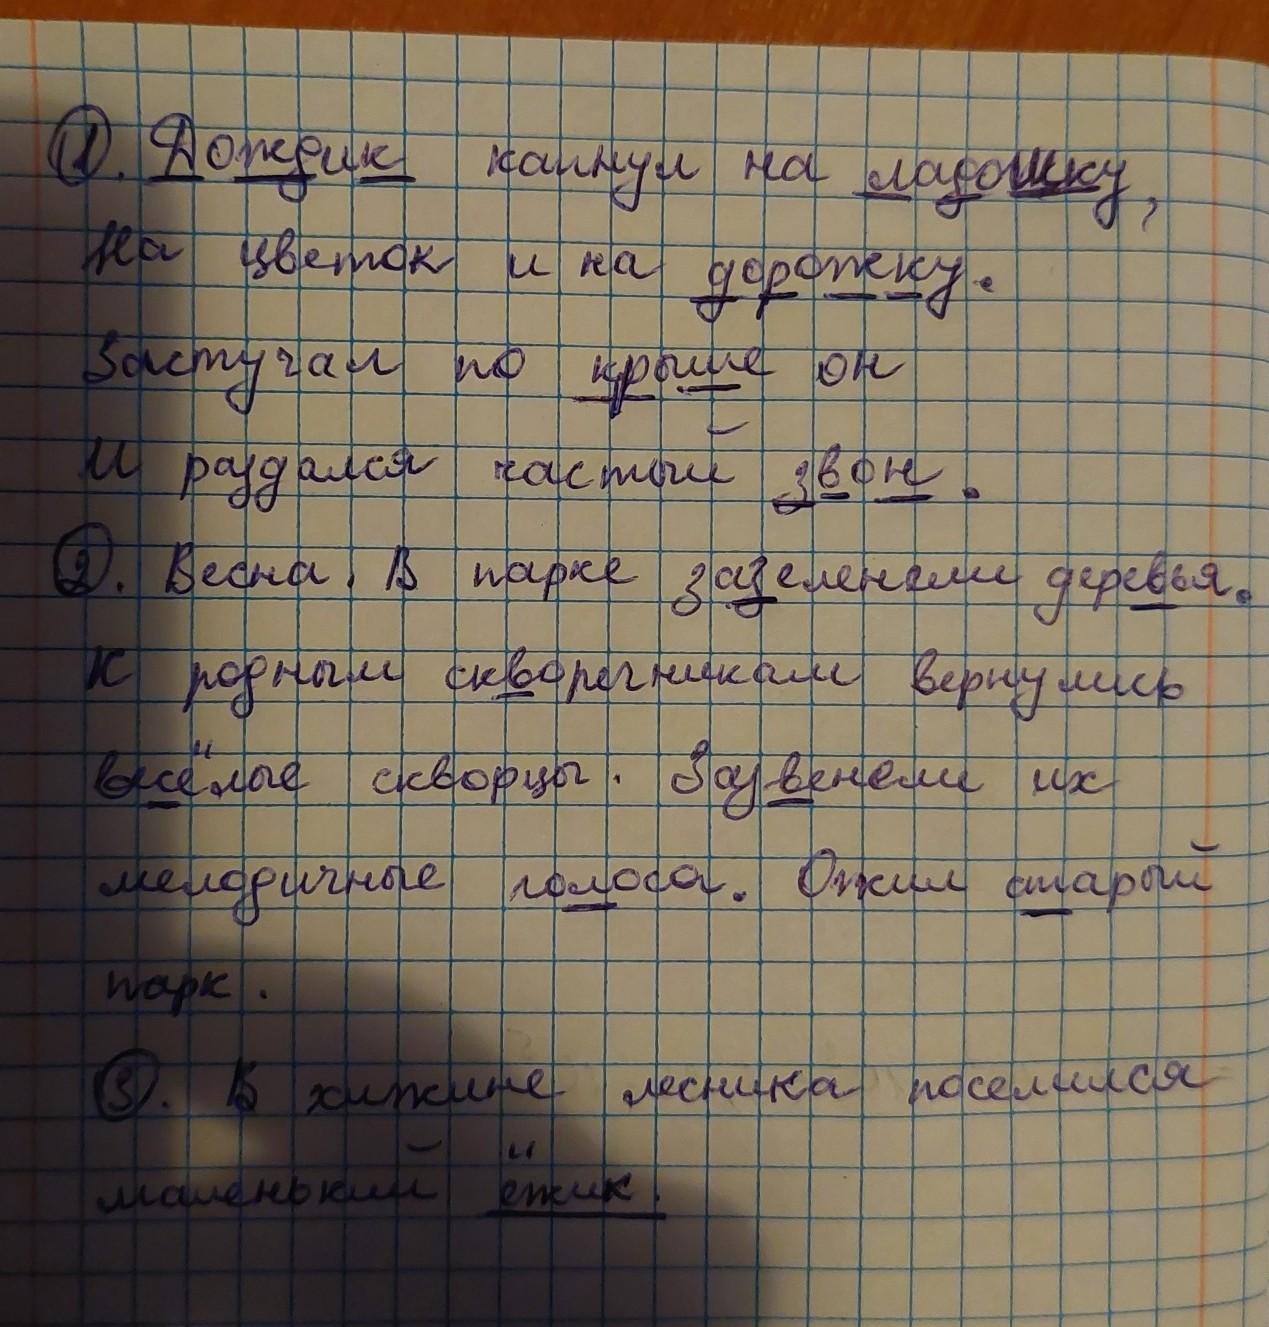 1. Дождик капнул на ладошку,
На цветок и на дорожку.
Застучал по крыше он
И раздался частый звон.
2. Весна. В парке зазеленели деревья.
К родным скворечникам вернулись
весёлые скворцы. Зазвенели их
мелодичные голоса. Ожил старый
парк.
3. В хижине лесника поселился
маленький ёжик.